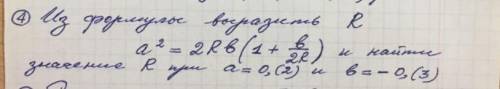 ④ Из формулы выразить R
a² = 2Rв(1 + в/2R) и найти
значение R при a = 0,(2) и в = -0,(3)